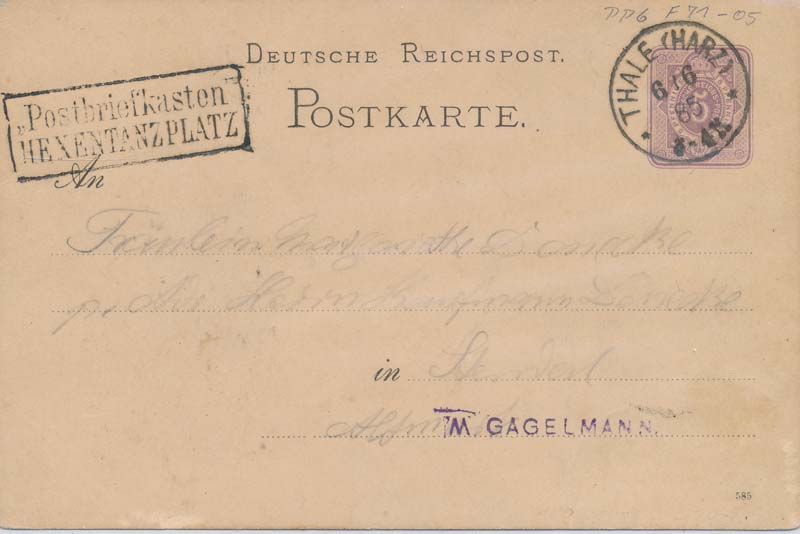 PP6 F71-05
DEUTSCHE REICHSPOST.
POSTKARTE.
„Postbriefkasten
HEXENTANZPLATZ
THALE (HARZ)
6/6
85
* *
An
Fräulein Margarethe
Herrn Kaufmann
in Stendal
M. GAGELMANN.
585